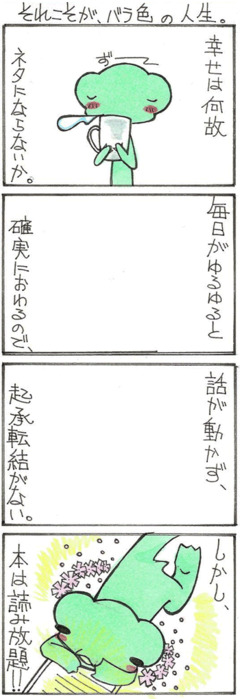 それこそが、バラ色の人生。
幸せは何故
ネタにならないか。
ずー
毎日がゆるゆると
確実におわるので、
話が動かず、
起承転結がない。
しかし、
本は読み放題!!